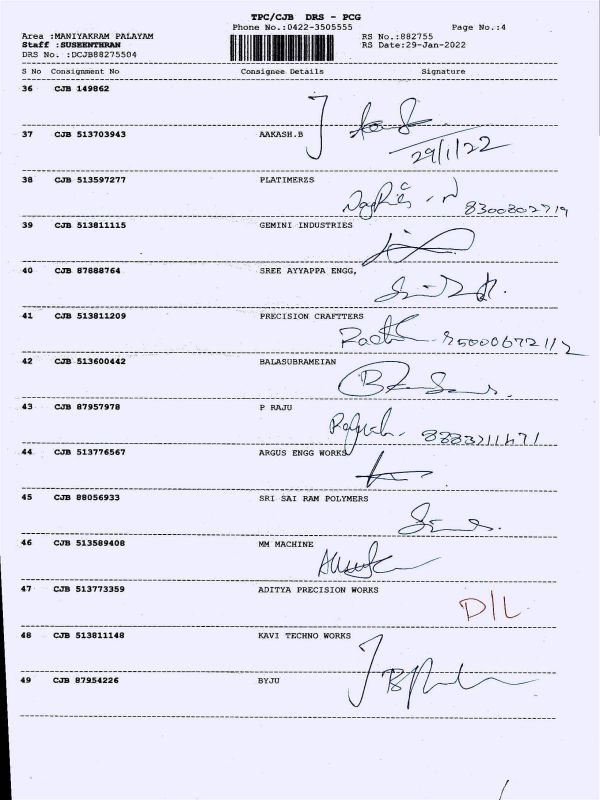 TPC/CJB DRS - PCG
Phone No.:0422-3505555 Page No.:4
Area :MANIYAKRAM PALAYAM RS No.:882755
Staff :SUSEENTHRAN RS Date:29-Jan-2022
DRS No. :DCJB88275504
S No Consignment No Consignee Details Signature
36 CJB 149862
37 CJB 513703943 AAKASH.B
29/1/22
38 CJB 513597277 PLATIMERZS
8300802719
39 CJB 513811115 GEMINI INDUSTRIES
40 CJB 87888764 SREE AYYAPPA ENGG,
41 CJB 513811209 PRECISION CRAFTTERS
42 CJB 513600442 BALASUBRAMEIAN
43 CJB 87957978 P RAJU
44 CJB 513776567 ARGUS ENGG WORKS
45 CJB 88056933 SRI SAI RAM POLYMERS
46 CJB 513589408 MM MACHINE
47 CJB 513773359 ADITYA PRECISION WORKS
D/L
48 CJB 513811148 KAVI TECHNO WORKS
49 CJB 87954226 BYJU